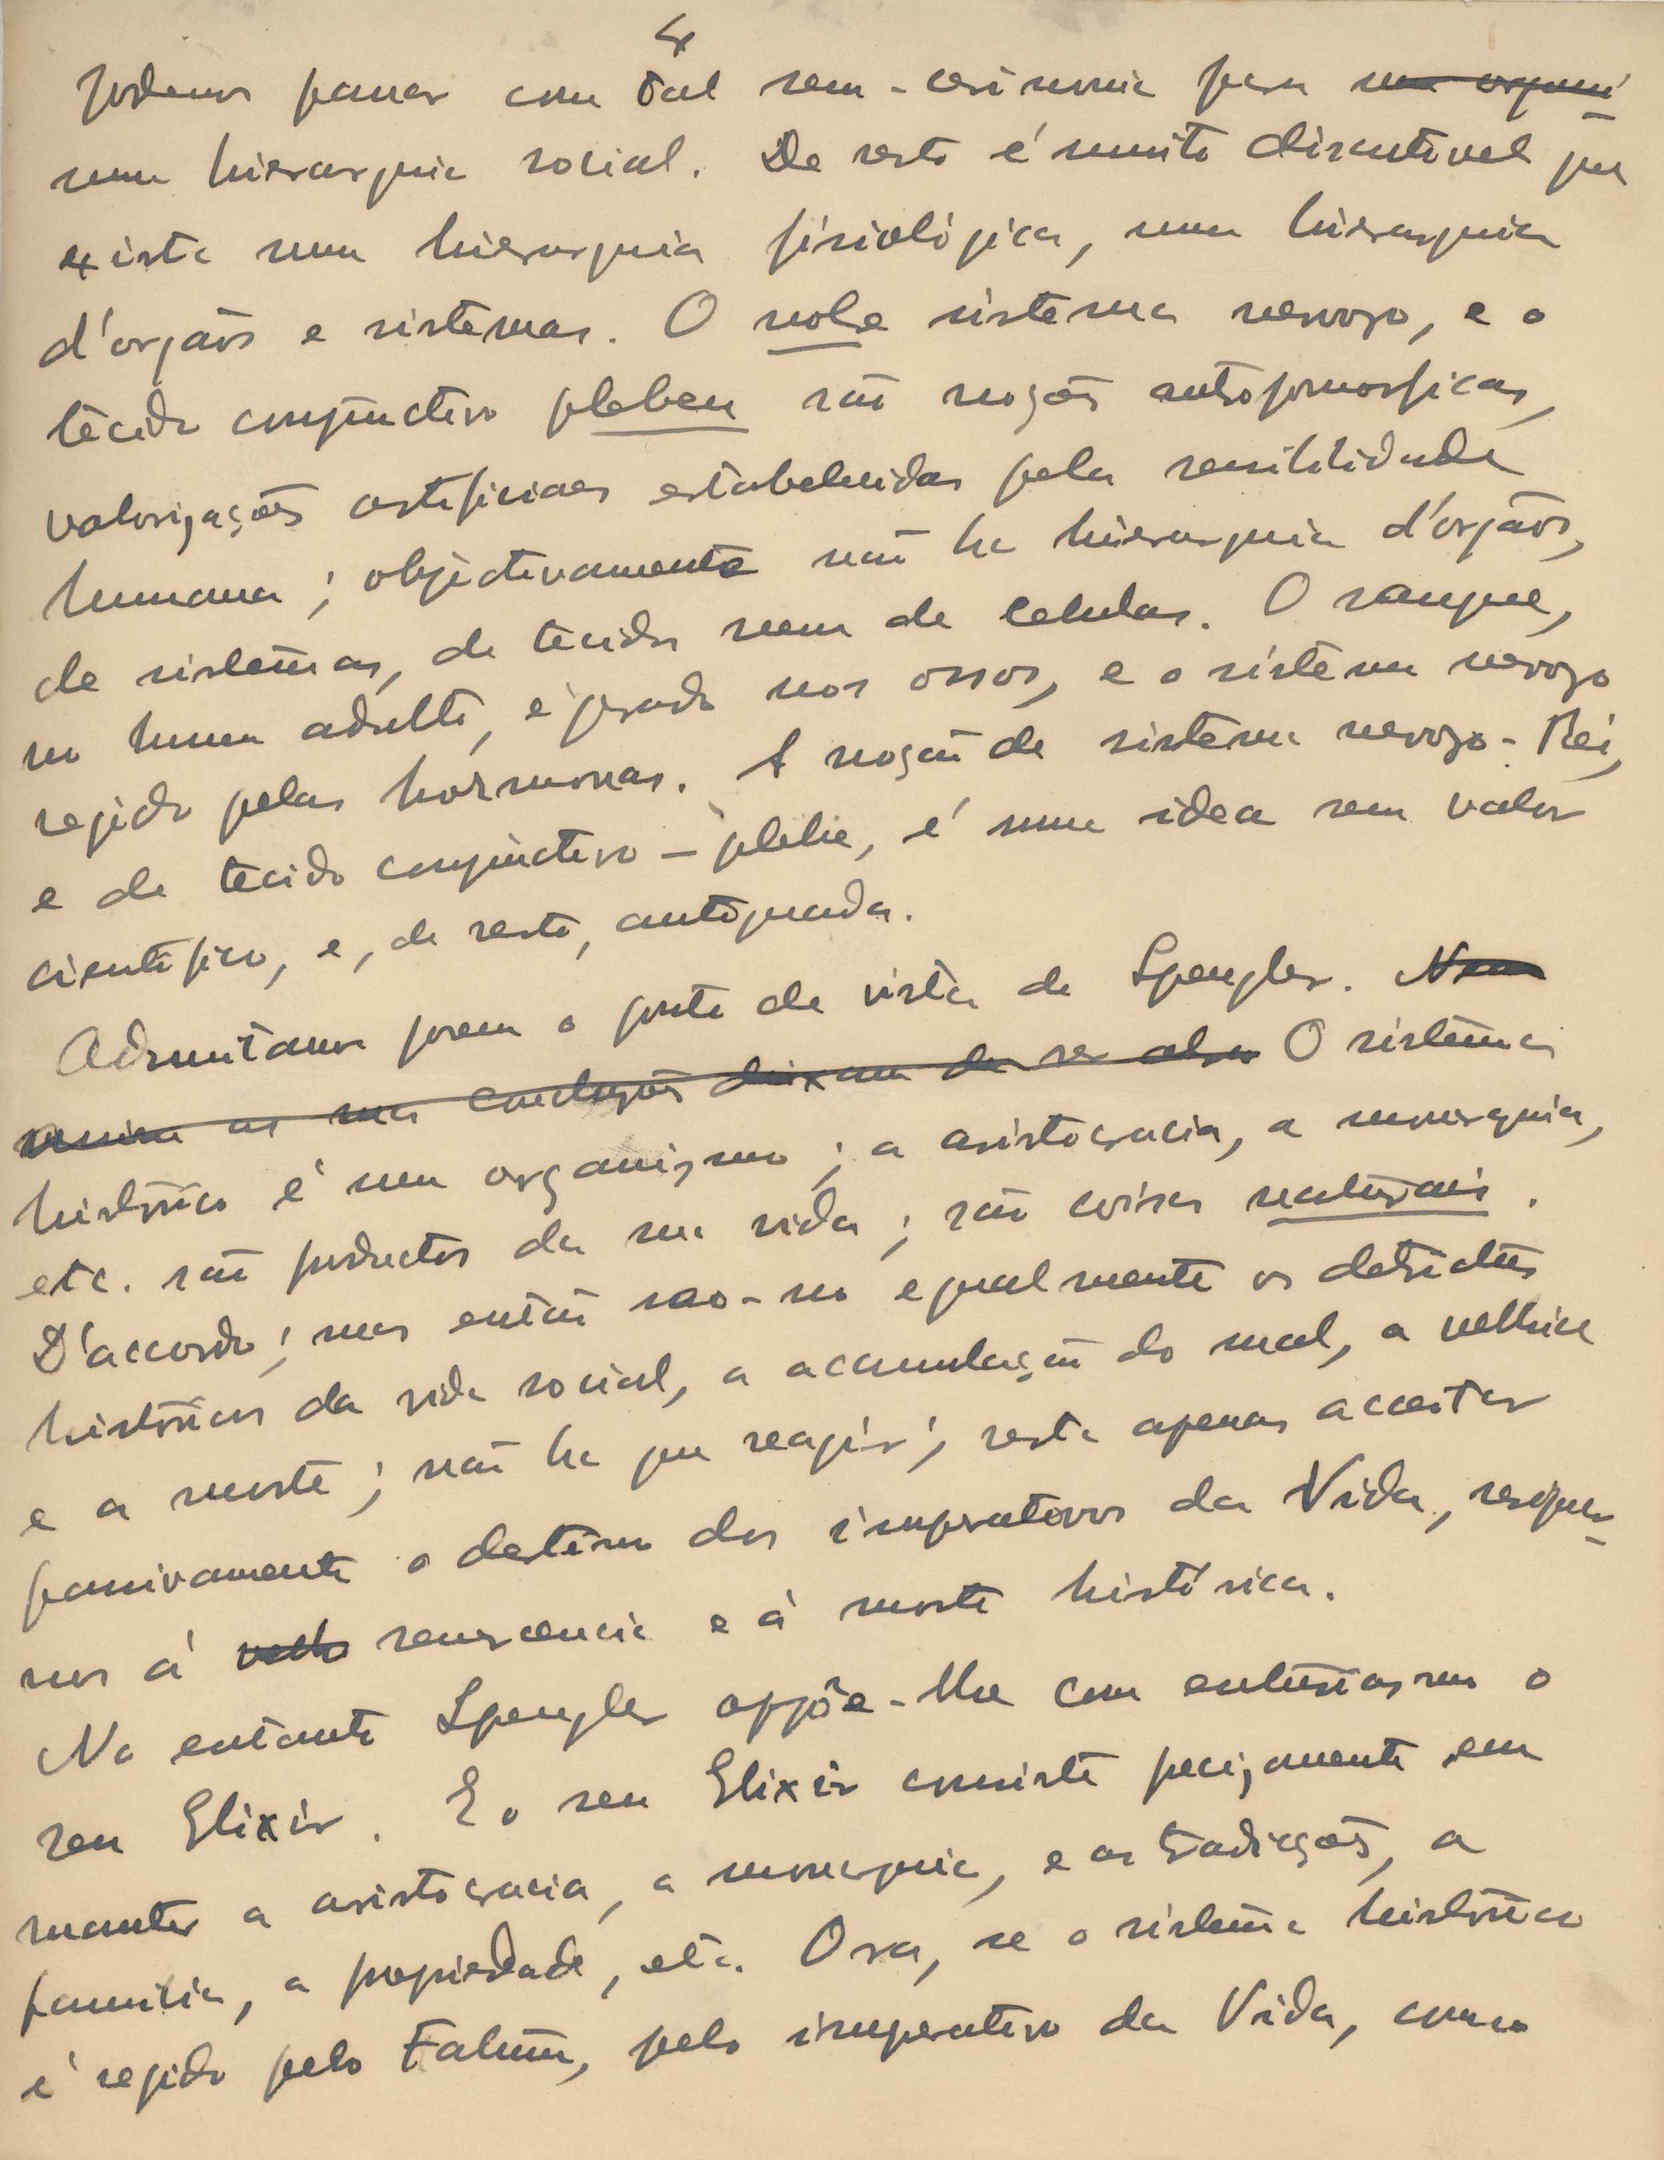 4
podemos passar com tal sem-cerimonia para uma organi-
uma hierarquia social. De resto é muito discutivel que
exista uma hierarquia fisiológica, uma hierarquia
d'orgãos e sistemas. O nobre sistema nervozo, e o
tecido conjunctivo plebeu são noções antropomorficas,
valorizações artificiaes estabelecidas pela sensibilidade
humana; objectivamente não ha hierarquia d'orgãos,
de sistemas, de tecidos nem de celulas. O sangue,
no homem adulto, é gerado nos ossos, e o sistema nervozo
regido pelas hormonas. A noção de sistema nervozo-Rei,
e de tecido conjunctivo-plebe, é uma idea sem valor
cientifico, e, de resto, antiquada.
Admitamos porem o ponto de vista de Spengler. Nem
as suas conclusões deixam de ser O sistema
histórico é um organismo; a aristocracia, a monarquia,
etc. são productos da sua vida; são coisas naturais.
D'accordo; mas então são-no egualmente os detrictos
históricos da vida social, a acumulação do mal, a velhice
e a morte; não ha que reagir; resta apenas acceitar
passivamente o destino dos imperativos da Vida, resignar-
nos á velh senescencia e á morte histórica.
No entanto Spengler oppõe-lhe com entusiasmo o
seu Elixir. E o seu Elixir consiste precizamente em
manter a aristocracia, a monarquia, e as tradicções, a
familia, a propriedade, etc. Ora, se o sistema histórico
é regido pelo Fatum, pelo imperativo da Vida, como